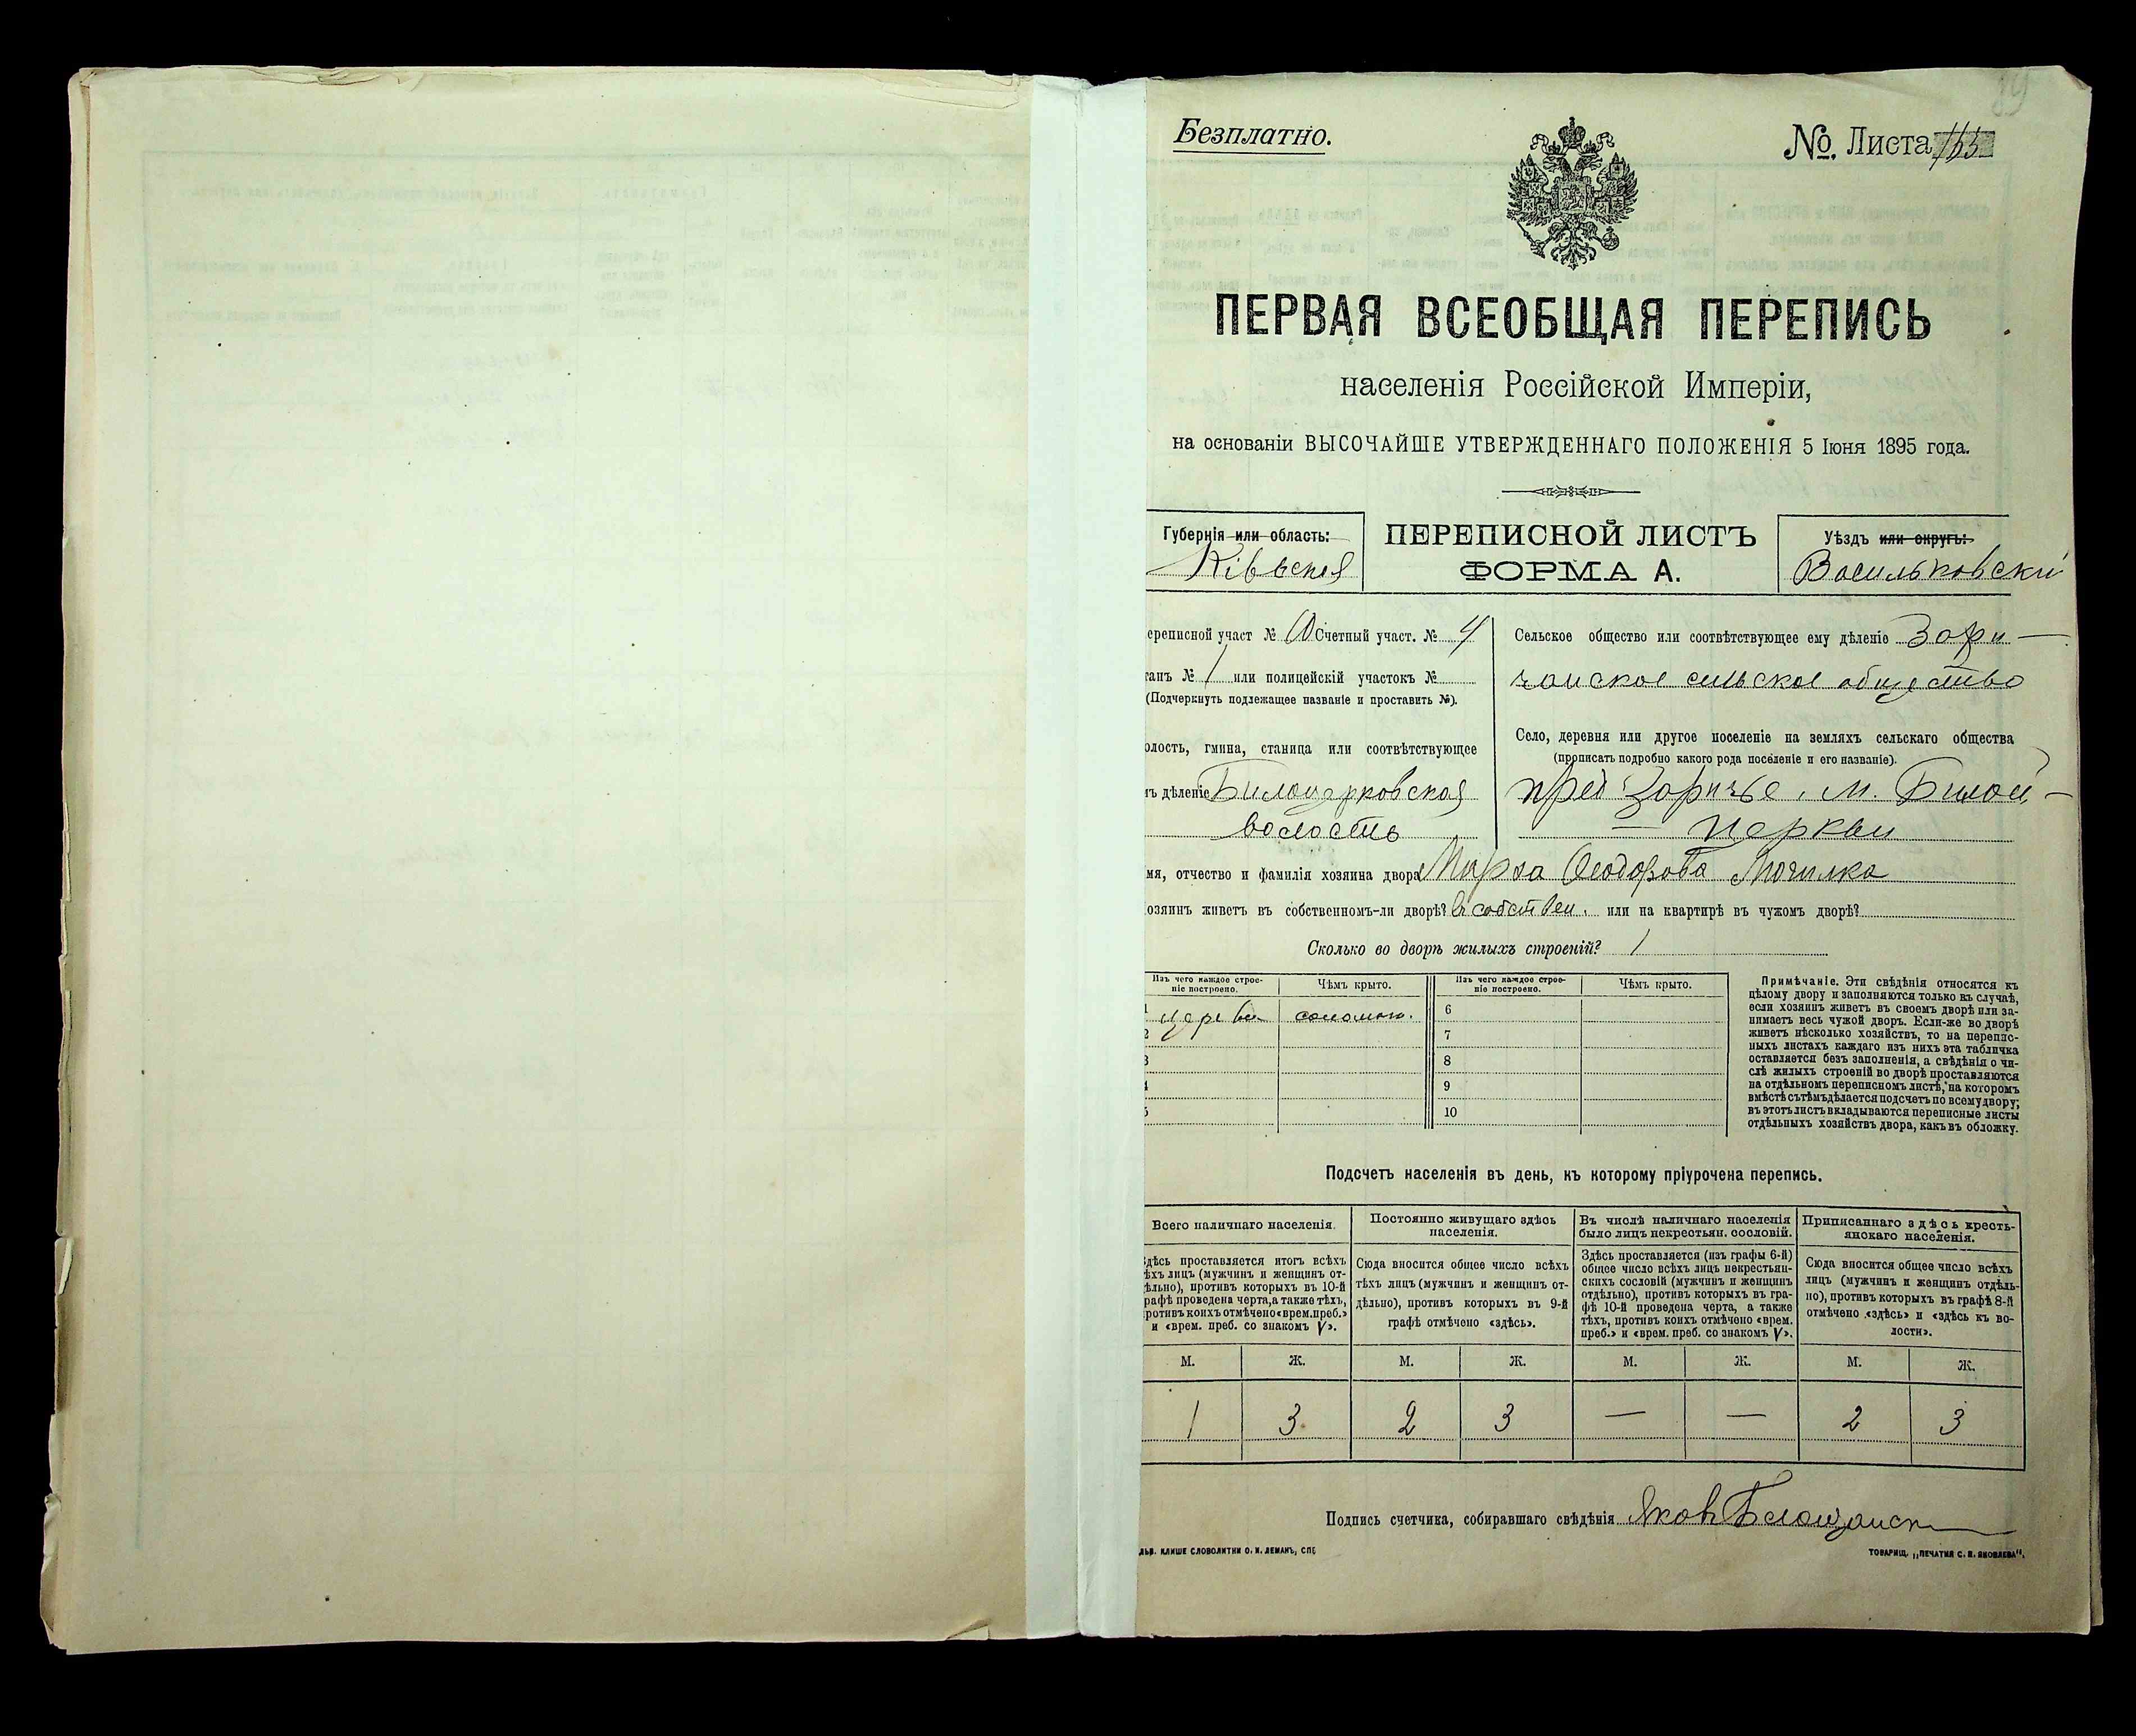 89
Безплатно.
№ Листа
ПЕРВАЯ ВСЕОБЩАЯ ПЕРЕПИСЬ
населенія Россійской Имперіи,
на основаніи ВЫСОЧАЙШЕ УТВЕРЖДЕННАГО ПОЛОЖЕНІЯ 5 Іюня 1895 года.
Губернія или область:
Кіевская
ПЕРЕПИСНОЙ ЛИСТЪ
ФОРМА А.
Уѣздъ или округъ:
Васильковскій
ереписной участ № 10 Счетный участ. № 4
танъ № 1 или полицейскій участокъ №
(Подчеркнуть подлежащее названіе и проставить №).
олость, гмина, станица или соотвѣтствующее
мъ дѣленіе Билоцерковская
волость
Сельское общество или соотвѣтствующее ему дѣленіе Зари-
чанское сельское общество
Село, деревня или другое поселеніе на земляхъ сельскаго общества
(прописать подробно какого рода поселеніе и его названіе).
пред Заричье, м. Билой-
Церкви
мя, отчество и фамилія хозяина двора Марѳа Ѳеодорова Мочилка
озяинъ живетъ въ собственномъ-ли дворѣ? в собствен. или на квартирѣ въ чужомъ дворѣ?
Сколько во дворѣ жилыхъ строеній? 1
Изъ чего каждое строе-
ніе построено.
Чѣмъ крыто.
Изъ чего каждое строе-
ніе построено.
Чѣмъ крыто.
1 дерев. соломою. 6
2 7
3 8
4 9
5 10
Примѣчаніе. Эти свѣдѣнія относятся къ
цѣлому двору и заполняются только въ случаѣ,
если хозяинъ живетъ въ своемъ дворѣ или за-
нимаетъ весь чужой дворъ. Если-же во дворѣ
живетъ нѣсколько хозяйствъ, то на перепис-
ныхъ листахъ каждаго изъ нихъ эта табличка
оставляется безъ заполненія, а свѣдѣнія о чи-
слѣ жилыхъ строеній во дворѣ проставляются
на отдѣльномъ переписномъ листѣ, на которомъ
вмѣстѣ съ тѣмъ дѣлается подсчетъ по всему двору;
въ этотъ листъ вкладываются переписные листы
отдѣльныхъ хозяйствъ двора, какъ въ обложку.
Подсчетъ населенія въ день, къ которому пріурочена перепись.
Всего наличнаго населенія.
дѣсь проставляется итогъ всѣхъ
ѣхъ лицъ (мужчинъ и женщинъ от-
ѣльно), противъ которыхъ въ 10-й
рафѣ проведена черта, а также тѣхъ,
ротивъ коихъ отмѣчено «врем. преб.»
и «врем. преб. со знакомъ V».
Постоянно живущаго здѣсь
населенія.
Сюда вносится общее число всѣхъ
тѣхъ лицъ (мужчинъ и женщинъ от-
дѣльно), противъ которыхъ въ 9-й
графѣ отмѣчено «здѣсь».
Въ числѣ наличнаго населенія
было лицъ некрестьян. сословій.
Здѣсь проставляется (изъ графы 6-й)
общее число всѣхъ лицъ некрестьян-
скихъ сословій (мужчинъ и женщинъ
отдѣльно), противъ которыхъ въ гра-
фѣ 10-й проведена черта, а также
тѣхъ, противъ коихъ отмѣчено «врем.
преб.» и «врем. преб. со знакомъ V».
Приписаннаго здѣсь кресть-
янскаго населенія.
Сюда вносится общее число всѣхъ
лицъ (мужчинъ и женщинъ отдѣль-
но), противъ которыхъ въ графѣ 8-й
отмѣчено «здѣсь» и «здѣсь къ во-
лости».
М. Ж. М. Ж. М. Ж. М. Ж.
1 3 2 3 — — 2 3
Подпись счетчика, собиравшаго свѣдѣнія Яков
ЛЬВ. КЛИШЕ СЛОВОЛИТНИ О. И. ЛЕМАНЪ, СПБ
ТОВАРИЩ. „ПЕЧАТНЯ С. П. ЯКОВЛЕВА".